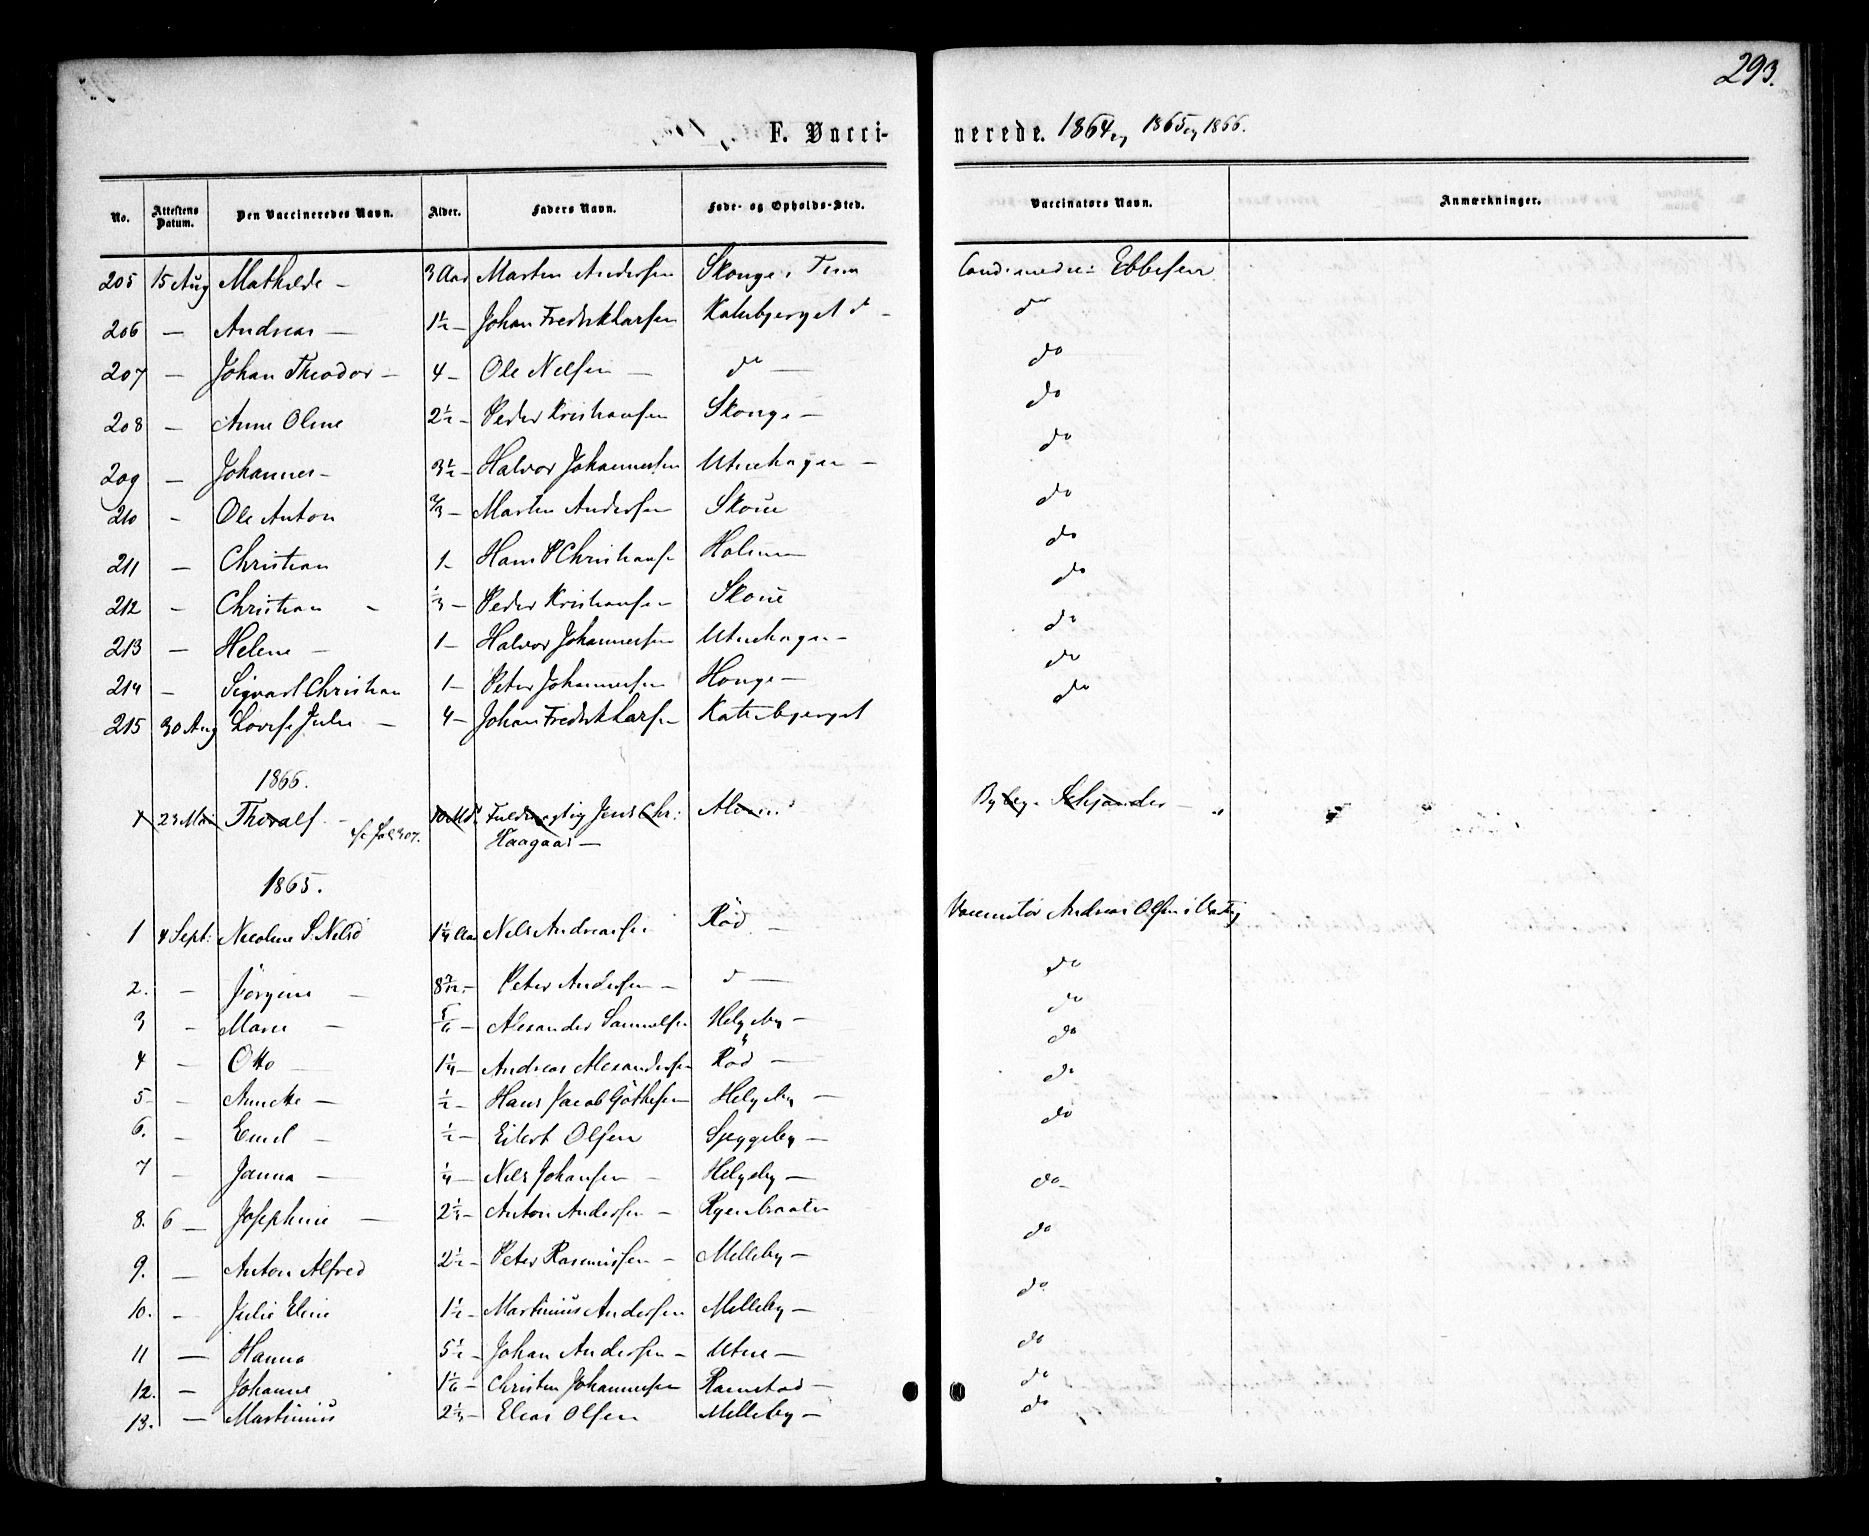 293.
F. Vacci- nerede. 1864 og 1865 og 1866.
No. Attestens Datum. Den Vaccineredes Navn. Alder. Faders Navn. Føde- og Opholds-Sted. Vaccinators Navn. Anmærkninger.
205 15 Aug Mathilde - 3 Aar Martin Andersen Ebbesen
206 — Andreas — 1½ - Johan Fredrik Larsen Katebjerget do
207 — Johan Theodor - 4 - Ole Nelsen — do — do
208 — Anne Oline 2½ - Peder Kristiansen do
209 — Johannes - 3½ - Halvor Johannessen Utnehagen — do
210 - Ole Anton ⅔ - Martin Andersen Skoue do
211 — Christian 1 - Hans P Christians do
212 - Christian - ⅓ - Peder Kristiansen Skoue do
213 — Helene - 1 - Halvor Johannessen Utnehagen - do
214 - Sigvart Christian 1 - Peter Johannessen do
215 30 Aug Lovise Julie - 4 - Johan Fredrik Larsen Katebjerget do
1866.
1 23 Mai Thoralf - 10 Md. Fuldmægtig Jens Chr:
Haagaas —
1865.
1 4 Sept: Nicoline S. Nelsd 1¼ Aar Nils Andreassen Rød - Vaccinatør Andreas Olsen i
2. - Jörgine - Peter Andersen - do — do
3 - Marie - ⅚ - Alexander Samuelsen Helgeby - do
4 - Otto — 1¼ - Andreas Alexandersen Rød — do
5 - Annette - ½ - Hans Jacob Göthesen Helgeby — do
6. - Emil - ½ - Eilert Olsen Speggeby — do
7 - Janna — ¼ - Nils Johansen - Helgeby —
8. 6 — Josephine — 2⅓ - Anton Andersen - Ryenbraaten do
9. — Anton Alfred 2½ - Peter Rasmussen - Melleby — do
10. - Julie Eline 1½ - Martinius Andersen Melleby — do
11 — Hanna 5½ - Johan Andersen - Utne — do
12. - Johanne 1⅙ - Christen Johannessen Ramstad — do
13. — Martinius 2⅓ - Elias Olsen Melleby — do